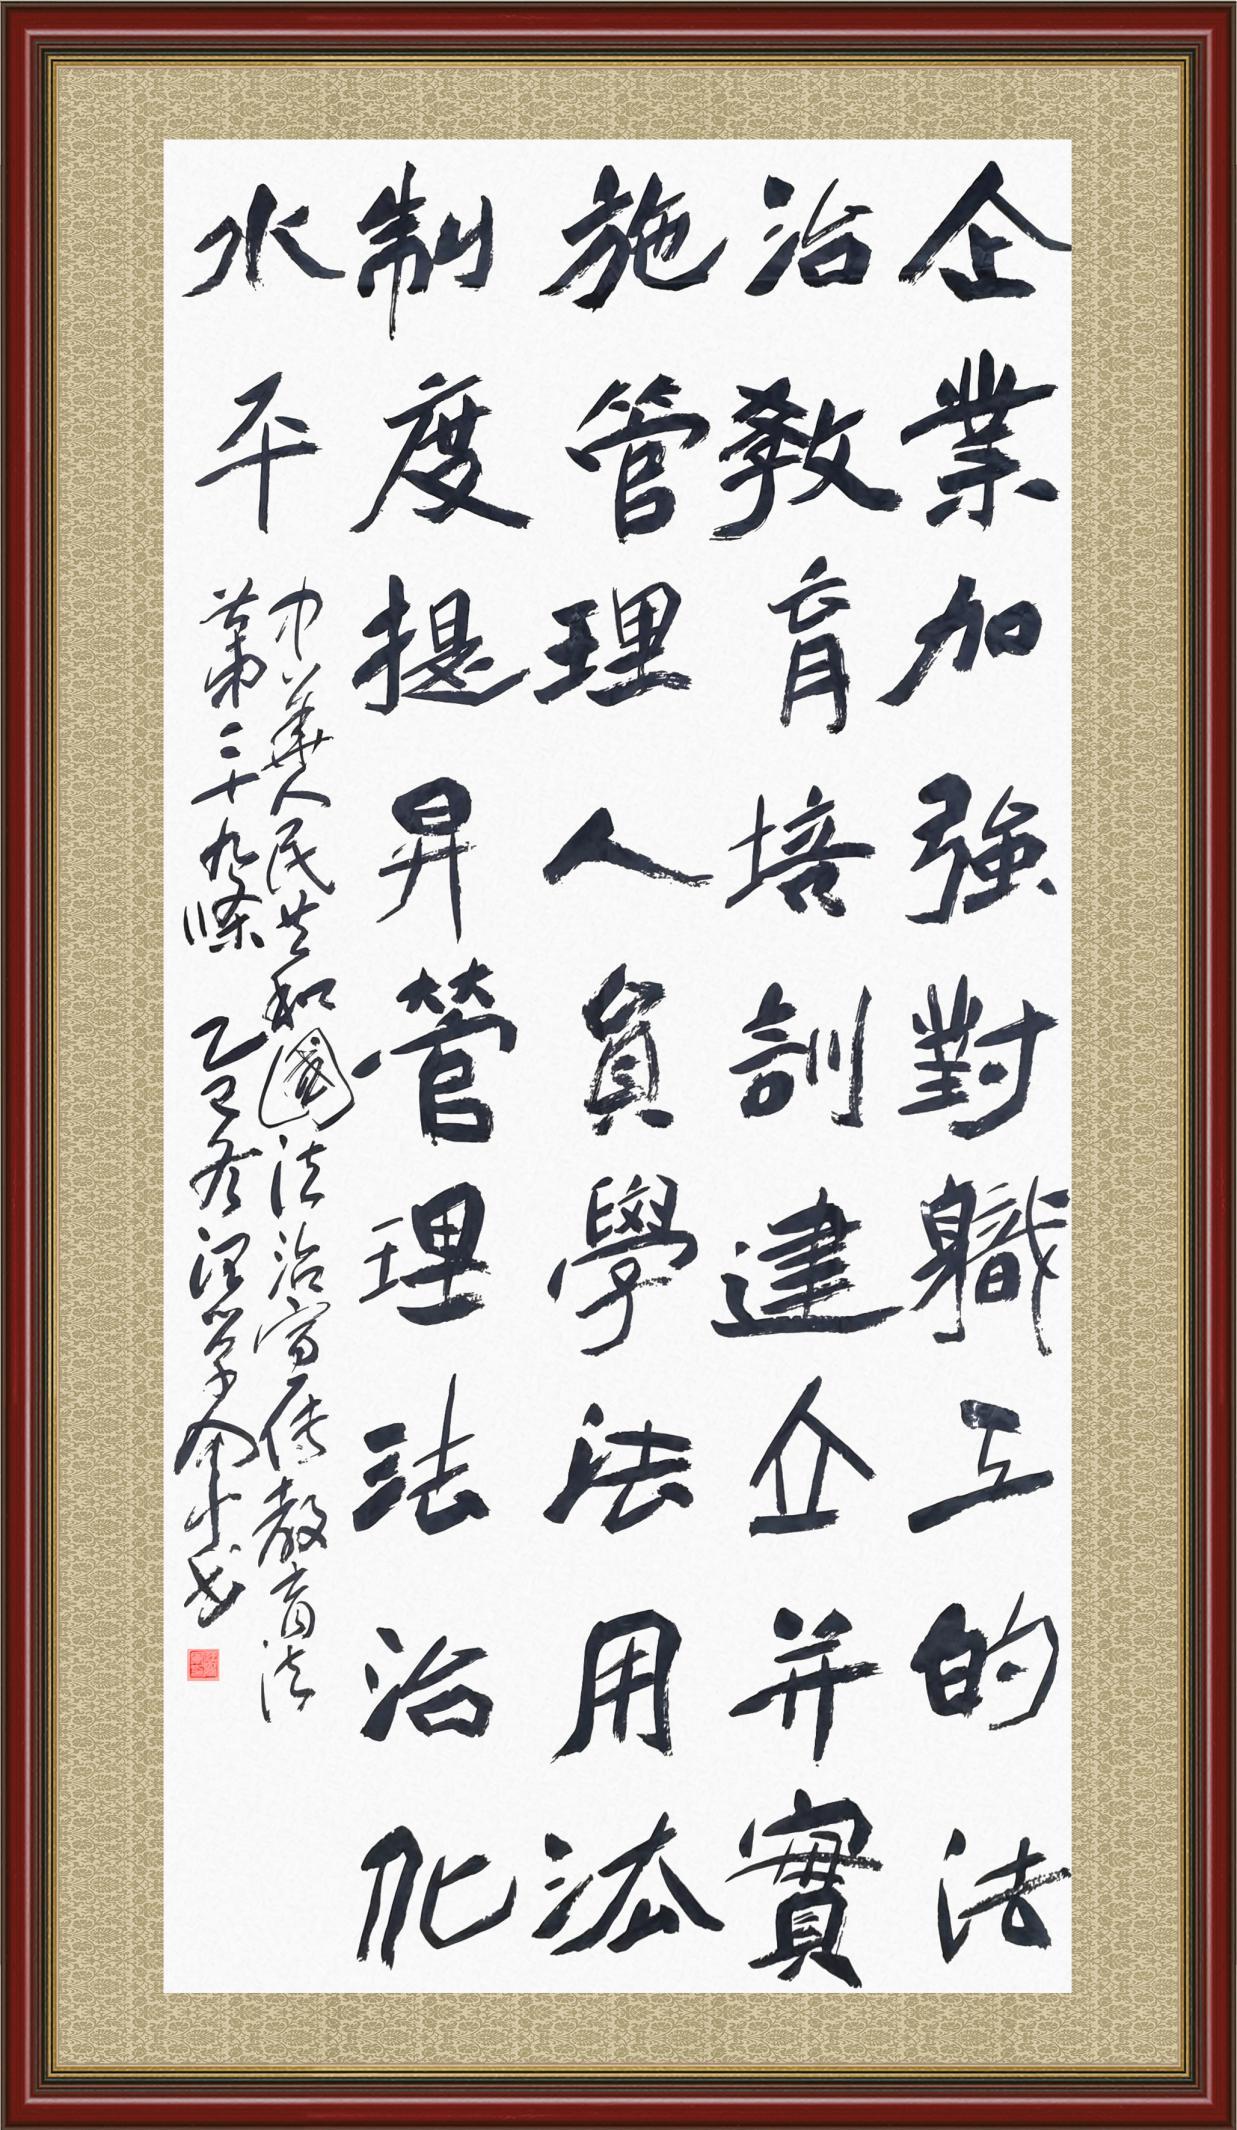 企業加強對職工的法
治教育培訓建企并實
施管理人員學法用法
制度提昇管理法治化
水平
中華人民共和國法治宣传教育法
第三十九條 乙巳冬
书